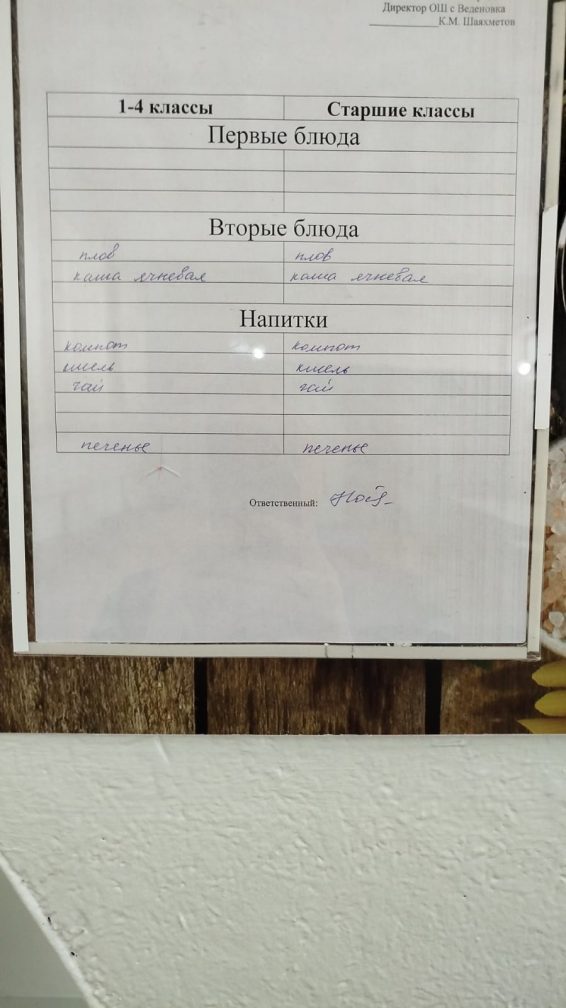 Директор ОШ с Веденовка
____________К.М. Шаяхметов
1-4 классы Старшие классы
Первые блюда
Вторые блюда
плов плов
каша ячневая каша ячневая
Напитки
компот компот
кисель кисель
чай чай
печенье печенье
Ответственный: